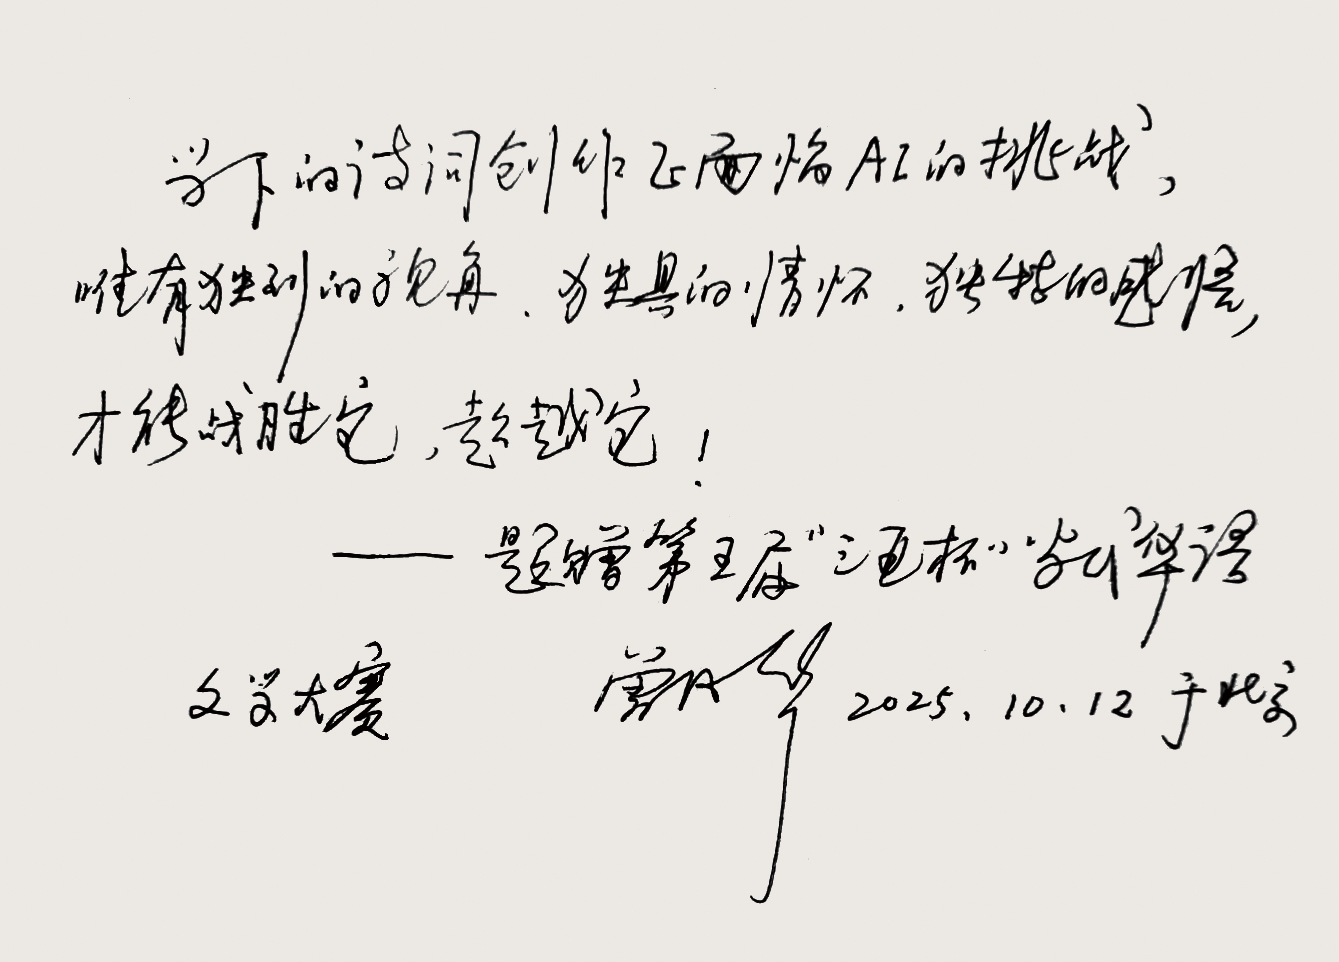 当下的诗词创作正面临AI的挑战，
唯有独到的视角、独具的情怀、独特的感悟，
才能战胜它，超越它！
——题赠第五届“三亚杯”全球华语
文学大赛 2025.10.12于北京